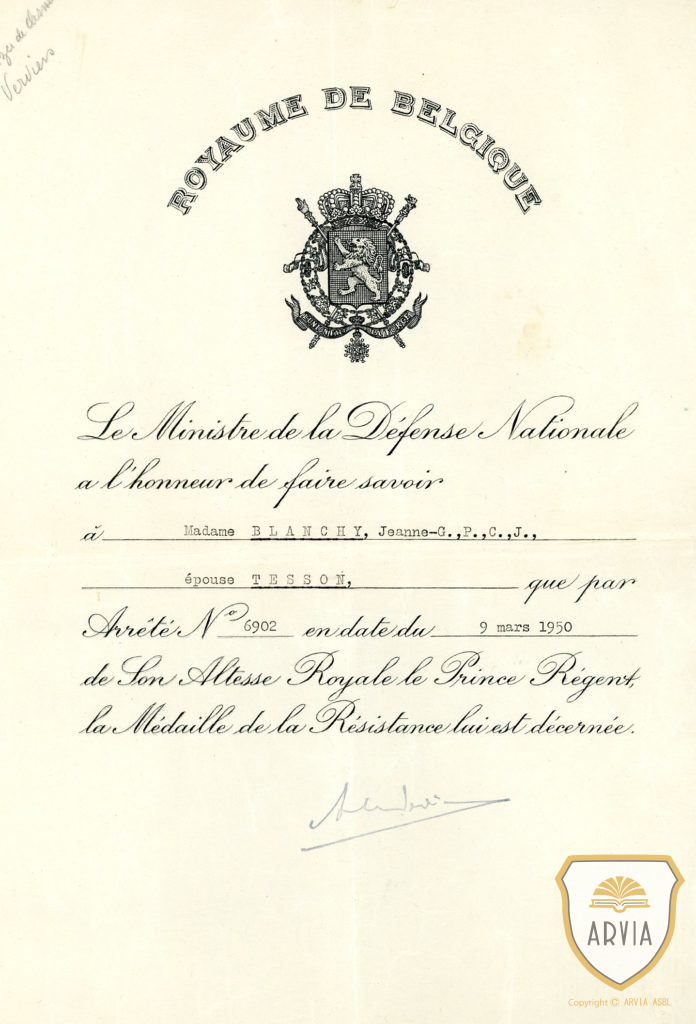 de
Verviers
ROYAUME DE BELGIQUE
Le Ministre de la Défense Nationale
a l'honneur de faire savoir
à Madame BLANCHY, Jeanne-G.,P.,C.,J.,
épouse TESSON, que par
Arrêté No 6902 en date du 9 mars 1950
de Son Altesse Royale le Prince Régent,
la Médaille de la Résistance lui est décernée.
ARVIA
Copyright © ARVIA ASBL